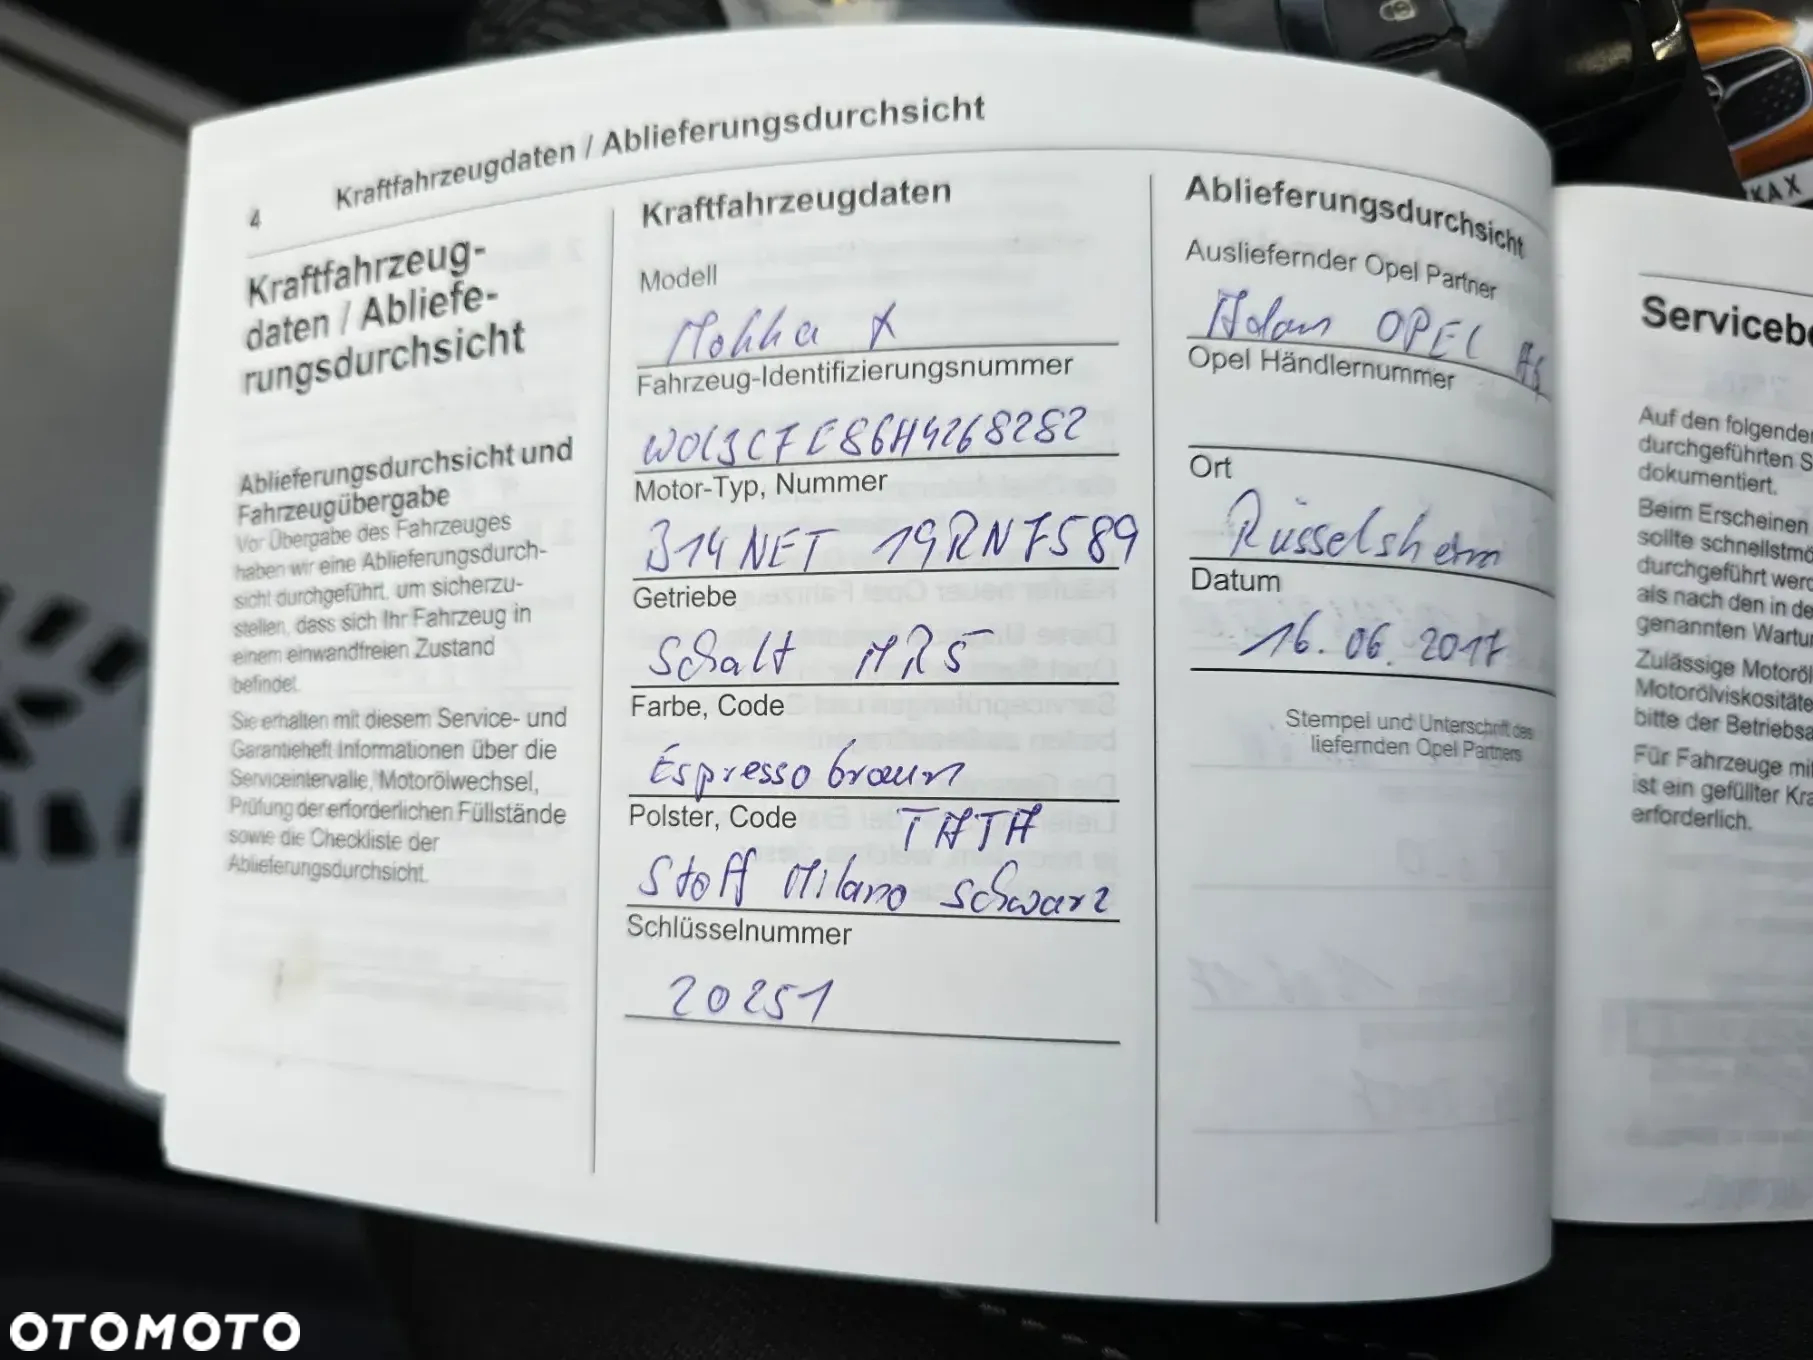 4
Kraftfahrzeugdaten / Ablieferungsdurchsicht
Kraftfahrzeug-
daten / Abliefe-
rungsdurchsicht
Ablieferungsdurchsicht und
Fahrzeugübergabe
Vor Übergabe des Fahrzeuges
haben wir eine Ablieferungsdurch-
sicht durchgeführt, um sicherzu-
stellen, dass sich Ihr Fahrzeug in
einem einwandfreien Zustand
befindet.
Sie erhalten mit diesem Service- und
Garantieheft Informationen über die
Serviceintervalle, Motorölwechsel,
Prüfung der erforderlichen Füllstände
sowie die Checkliste der
Ablieferungsdurchsicht.
Kraftfahrzeugdaten
Modell
Mokka X
Fahrzeug-Identifizierungsnummer
W0L3CFE86H4268282
Motor-Typ, Nummer
B14NET 19RN7589
Getriebe
Schalt MR5
Farbe, Code
Espressobraun
Polster, Code
TATA
Stoff Milano schwarz
Schlüsselnummer
20251
Ablieferungsdurchsicht
Ausliefernder Opel Partner
Adam OPEL AG
Opel Händlernummer
Ort
Rüsselsheim
Datum
16.06.2017
Stempel und Unterschrift des
liefernden Opel Partners
Auf den folgenden
durchgeführten
dokumentiert.
Beim Erscheinen
sollte
durchgeführt
als nach den in
genannten
Zulässige
bitte der
Für Fahrzeuge
ist ein gefüllter
erforderlich.
OTOMOTO